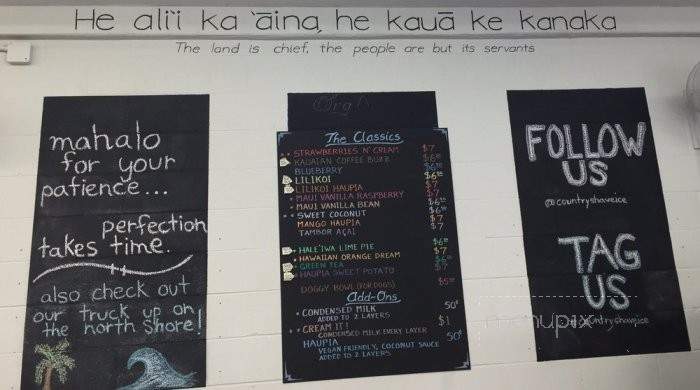 He ali'i ka 'āina, he kauā ke kanaka
The land is chief, the people are but its servants
mahalo
for your
patience...
perfection
takes time.
also check out
our truck up on
the north shore!
The Classics
STRAWBERRIES 'N' CREAM $7
KAUAIAN COFFEE BUZZ $6
BLUEBERRY $6
LILIKOI $6
LILIKOI HAUPIA $7
MAUI VANILLA RASPBERRY $7
MAUI VANILLA BEAN $6
SWEET COCONUT $6
MANGO HAUPIA $7
TAMBOR AÇAI $7
HALE'IWA LIME PIE $6
HAWAIIAN ORANGE DREAM $7
GREEN TEA $6
HAUPIA SWEET POTATO $7
DOGGY BOWL (FOR DOGS)
Add-Ons
CONDENSED MILK 50¢
ADDED TO 2 LAYERS
CREAM IT! $1
CONDENSED MILK EVERY LAYER
HAUPIA 50¢
VEGAN FRIENDLY, COCONUT SAUCE
ADDED TO 2 LAYERS
FOLLOW
US
@countryshaveice
TAG
US
@countryshaveice
menupix